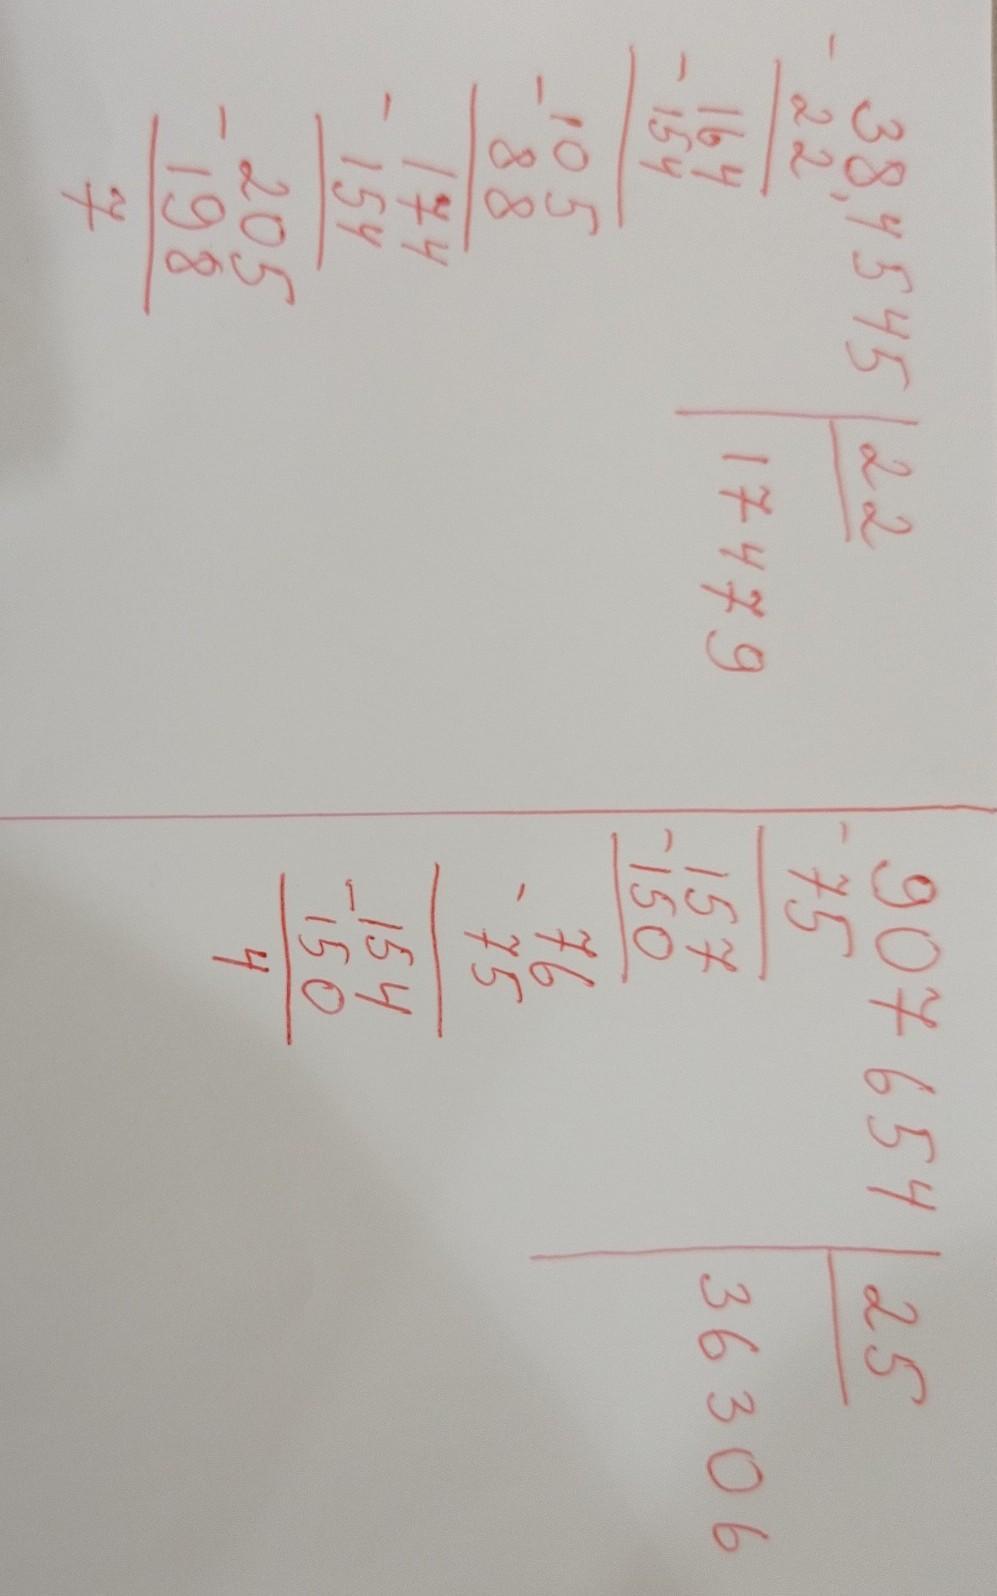 38,4545 | 22
- 22
17479
164
- 154
105
- 88
174
- 154
205
- 198
7
907654 | 25
- 75
36306
157
- 150
76
- 75
154
- 150
4